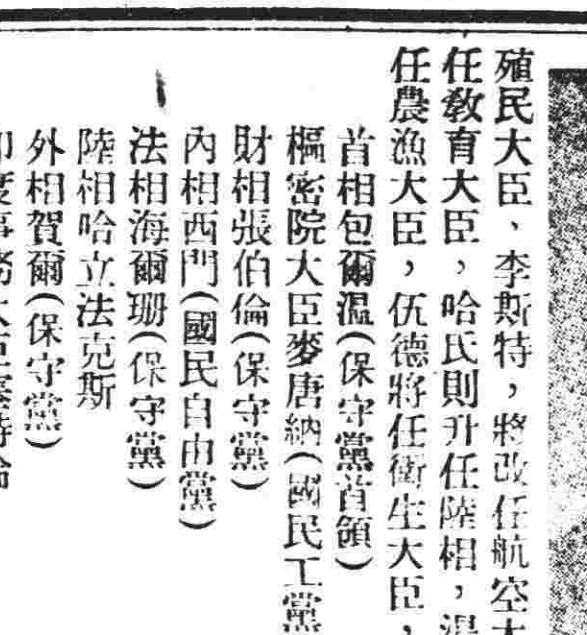 殖民大臣、李斯特，將改任航空大
任敎育大臣，哈氏則升任陸相，溫
任農漁大臣，伍德將任衞生大臣，
首相包爾溫（保守黨首領）
樞密院大臣麥唐納（國民工黨
財相張伯倫（保守黨）
內相西門（國民自由黨）
法相海爾珊（保守黨）
陸相哈立法克斯
外相賀爾（保守黨）
印度事務大臣